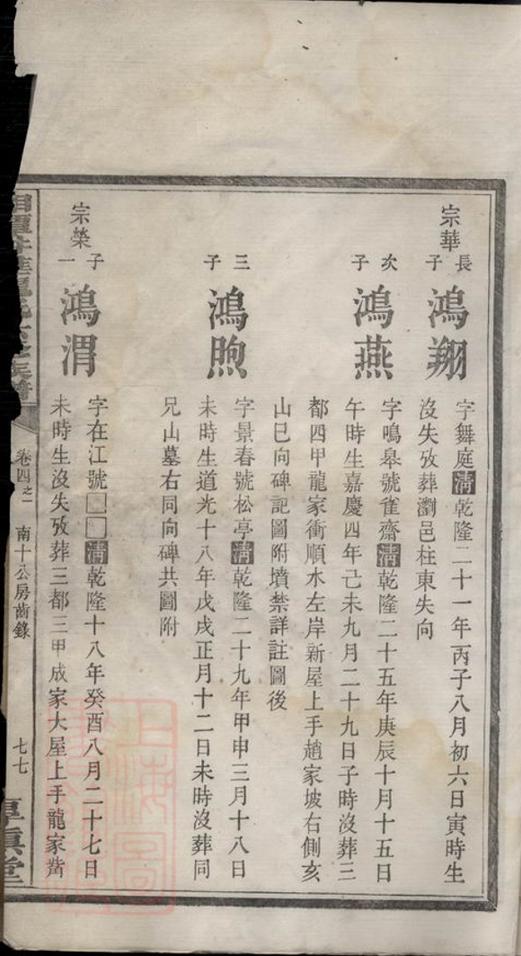 宗華
長子
鴻翔
字舞庭清乾隆二十一年丙子八月初六日寅時生
沒失攷葬瀏邑柱東失向
次子
鴻燕
字鳴皋號雀齋清乾隆二十五年庚辰十月十五日
午時生嘉慶四年己未九月二十九日子時沒葬三
都四甲龍家衝順水左岸新屋上手趙家坡右側亥
山巳向碑記圖附墳禁詳註圖後
三子
鴻煦
字景春號松亭清乾隆二十九年甲申三月十八日
未時生道光十八年戊戌正月十二日未時沒葬同
兄山墓右同向碑共圖附
宗榮
子一
鴻渭
字在江號□□清乾隆十八年癸酉八月二十七日
未時生沒失攷葬三都三甲成家大屋上手龍家嘴
卷四之一
南十公房齒錄
七七
上海圖書館藏